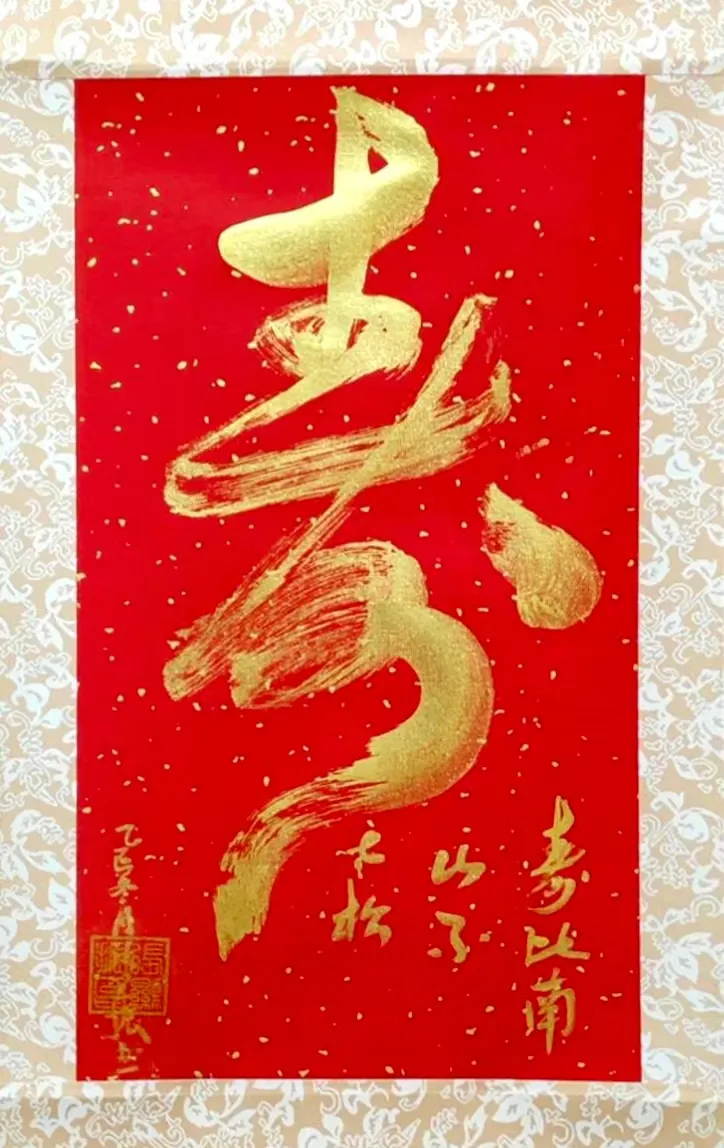 寿
寿比南
山不
老松
乙巳冬月